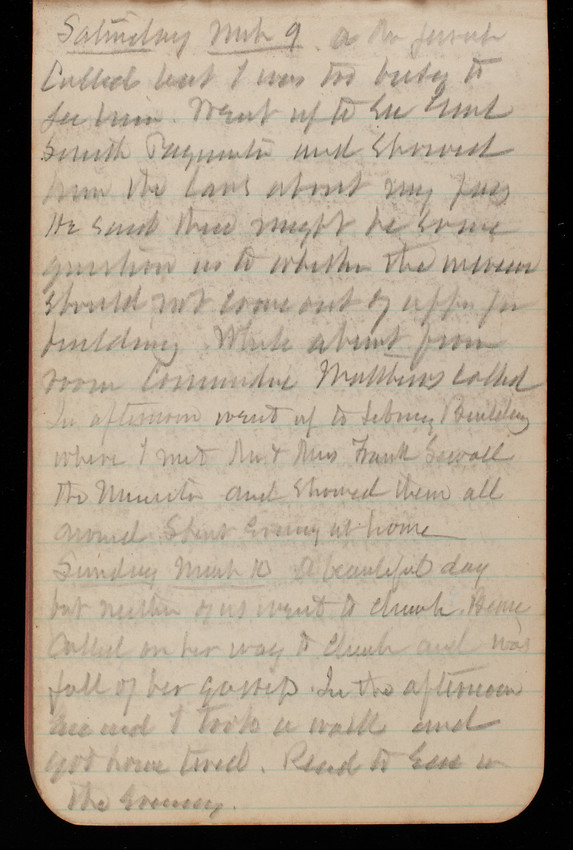 Saturday Mch 9 a Mr
Called but I was too busy to
see him. Went up to see Genl
Smith Paymaster and showed
him the laws about my pay
He said there might be some
question as to whether the
should not come out of app. for
building. While absent from
room Commander Matthews called
In afternoon went up to Library Building
where I met Mr & Mrs Frank Sewall
the Minister and showed them all
around. Spent Evening at home
Sunday March 10 A beautiful day
but neither of us went to church.
Called on her way to church and was
full of her gossip. In the afternoon
and I took a walk and
got home tired. Read to in
the Evening.